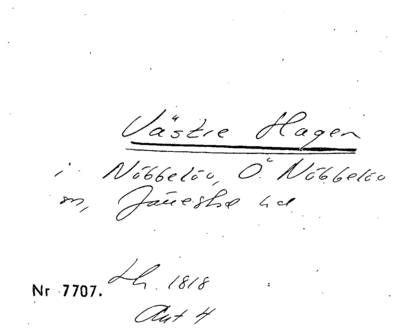 Västre Hagen
i Nöbbelöv, Ö. Nöbbelöv
sn, Järestad hd
Nr 7707. Lh. 1818
Akt 4